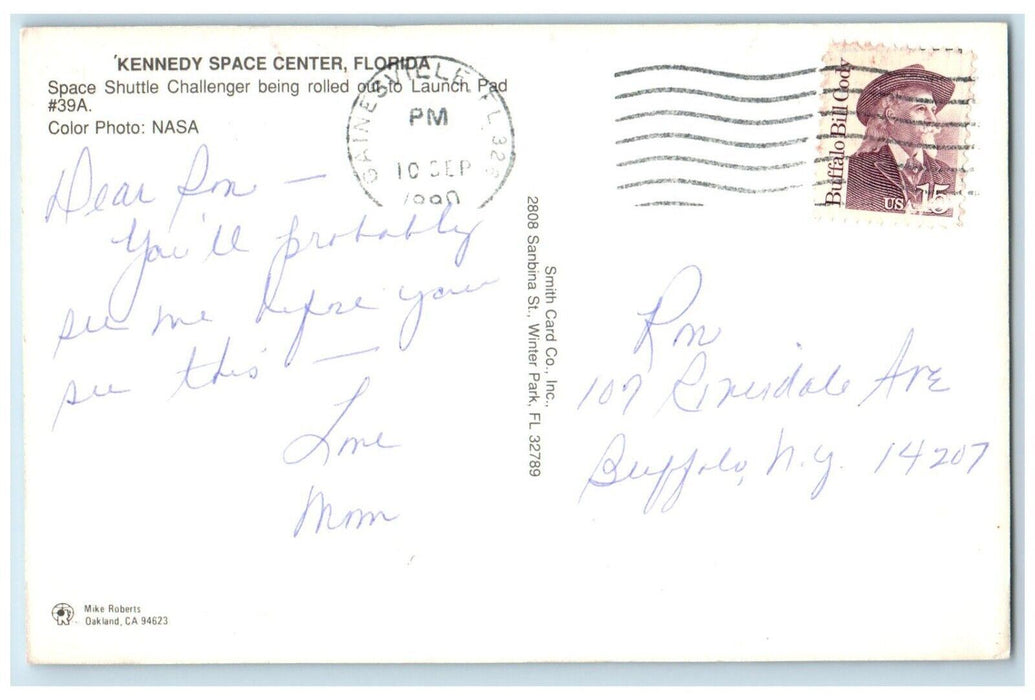 KENNEDY SPACE CENTER, FLORIDA
Space Shuttle Challenger being rolled out to Launch Pad
#39A.
Color Photo: NASA
Dear Ron —
You'll probably
see me before you
see this —
Love
Mom
Mike Roberts
Oakland, CA 94623
Smith Card Co., Inc.,
2808 Sanbina St., Winter Park, FL 32789
GAINESVILLE FL 326
PM
10 SEP
1990
Buffalo Bill Cody
USA 15
Ron
107 Riverdale Ave
Buffalo, N.Y. 14207